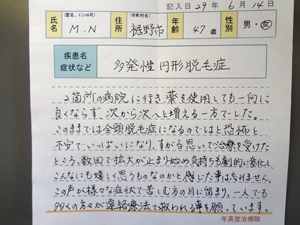 記入日 29年 6月 14日
氏名 (匿名、イニシャル可) M.N 住所 (市町村名) 裾野市 年齢 47歳 性別 男・女
疾患名 症状など 多発性円形脱毛症
2箇所の病院に行き薬を使用しても一向に
良くならず、次から次へと増える一方でした。
このままでは全頭脱毛症になるのではと恐怖と
不安でいっぱいになり、すがる思いで治療を受けた
ところ、数回で拡大が止まり始め気持ちも劇的に変化し
こんなにも嬉しく思うものなのかと感じた事は忘れません。
この声が様々な症状で苦しむ方の目に留まり、一人でも
多くの方々が 療法で救われる事を願っています。
年英堂治療院